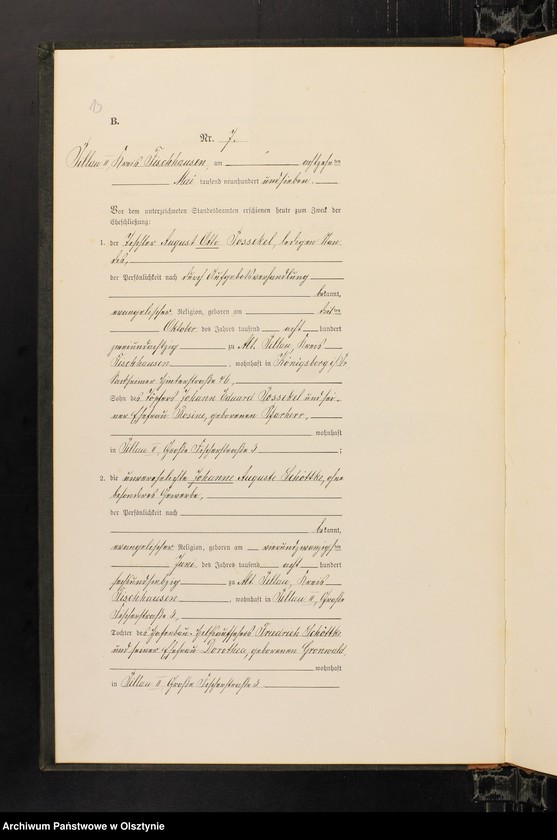 13
B.
Nr. 7.
Pillau II, Kreis Fischhausen, am achtzehnten
Mai tausend neunhundert und sieben.
Vor dem unterzeichneten Standesbeamten erschienen heute zum Zweck der
Eheschließung:
1. der August Otto Jossekel, ledigen
der Persönlichkeit nach durch Aufgebotsverhandlung
bekannt,
evangelischer Religion, geboren am
Oktober des Jahres tausend acht hundert
zweiundachtzig zu Alt Pillau, Kreis
Fischhausen, wohnhaft in Königsberg i/Pr.
Hinterstraße 46,
Sohn des Töpfers Johann Eduard Jossekel und sei-
ner Ehefrau Rosine, geborenen
wohnhaft
in Pillau II, Große Fischerstraße 3;
2. die unverehelichte Johanne Auguste Schöttke, ohne
besonderes Gewerbe,
der Persönlichkeit nach
bekannt,
evangelischer Religion, geboren am vierundzwanzigsten
Juni des Jahres tausend acht hundert
sechsundsiebzig zu Alt Pillau, Kreis
Fischhausen, wohnhaft in Pillau II, Große
Fischerstraße 3,
Tochter des Hafenbau- Friedrich Schöttke
und seiner Ehefrau Dorothea, geborenen Gronwald
wohnhaft
in Pillau II, Große Fischerstraße 3
Archiwum Państwowe w Olsztynie